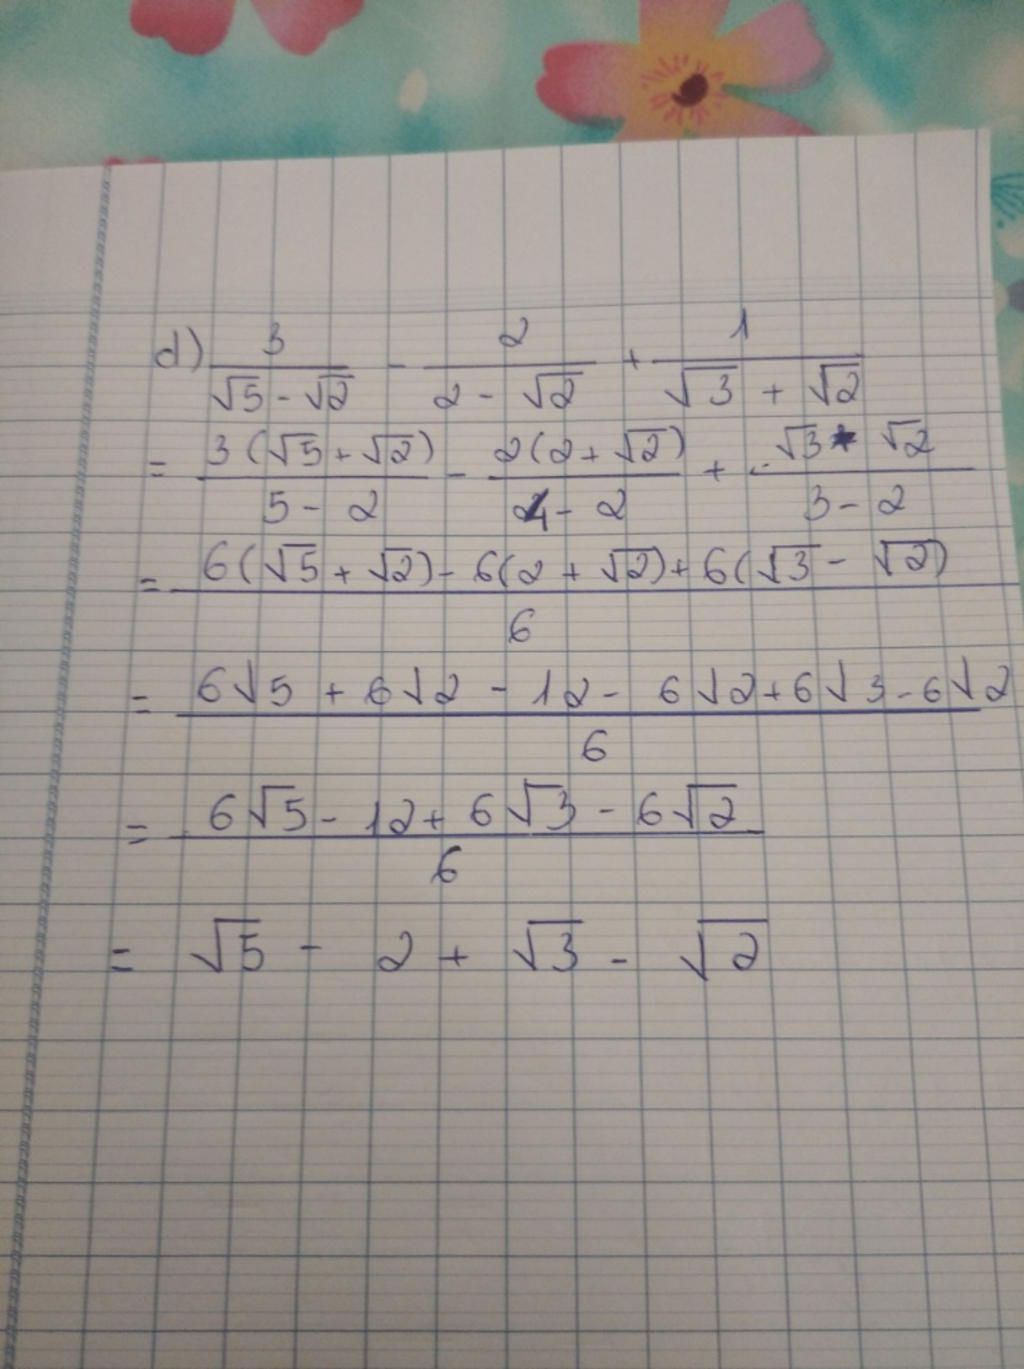 d) 3/(√5 - √2) - 2/(2 - √2) + 1/(√3 + √2)
= 3(√5 + √2)/(5 - 2) - 2(2 + √2)/(4 - 2) + (√3 - √2)/(3 - 2)
= (6(√5 + √2) - 6(2 + √2) + 6(√3 - √2))/6
= (6√5 + 6√2 - 12 - 6√2 + 6√3 - 6√2)/6
= (6√5 - 12 + 6√3 - 6√2)/6
= √5 - 2 + √3 - √2